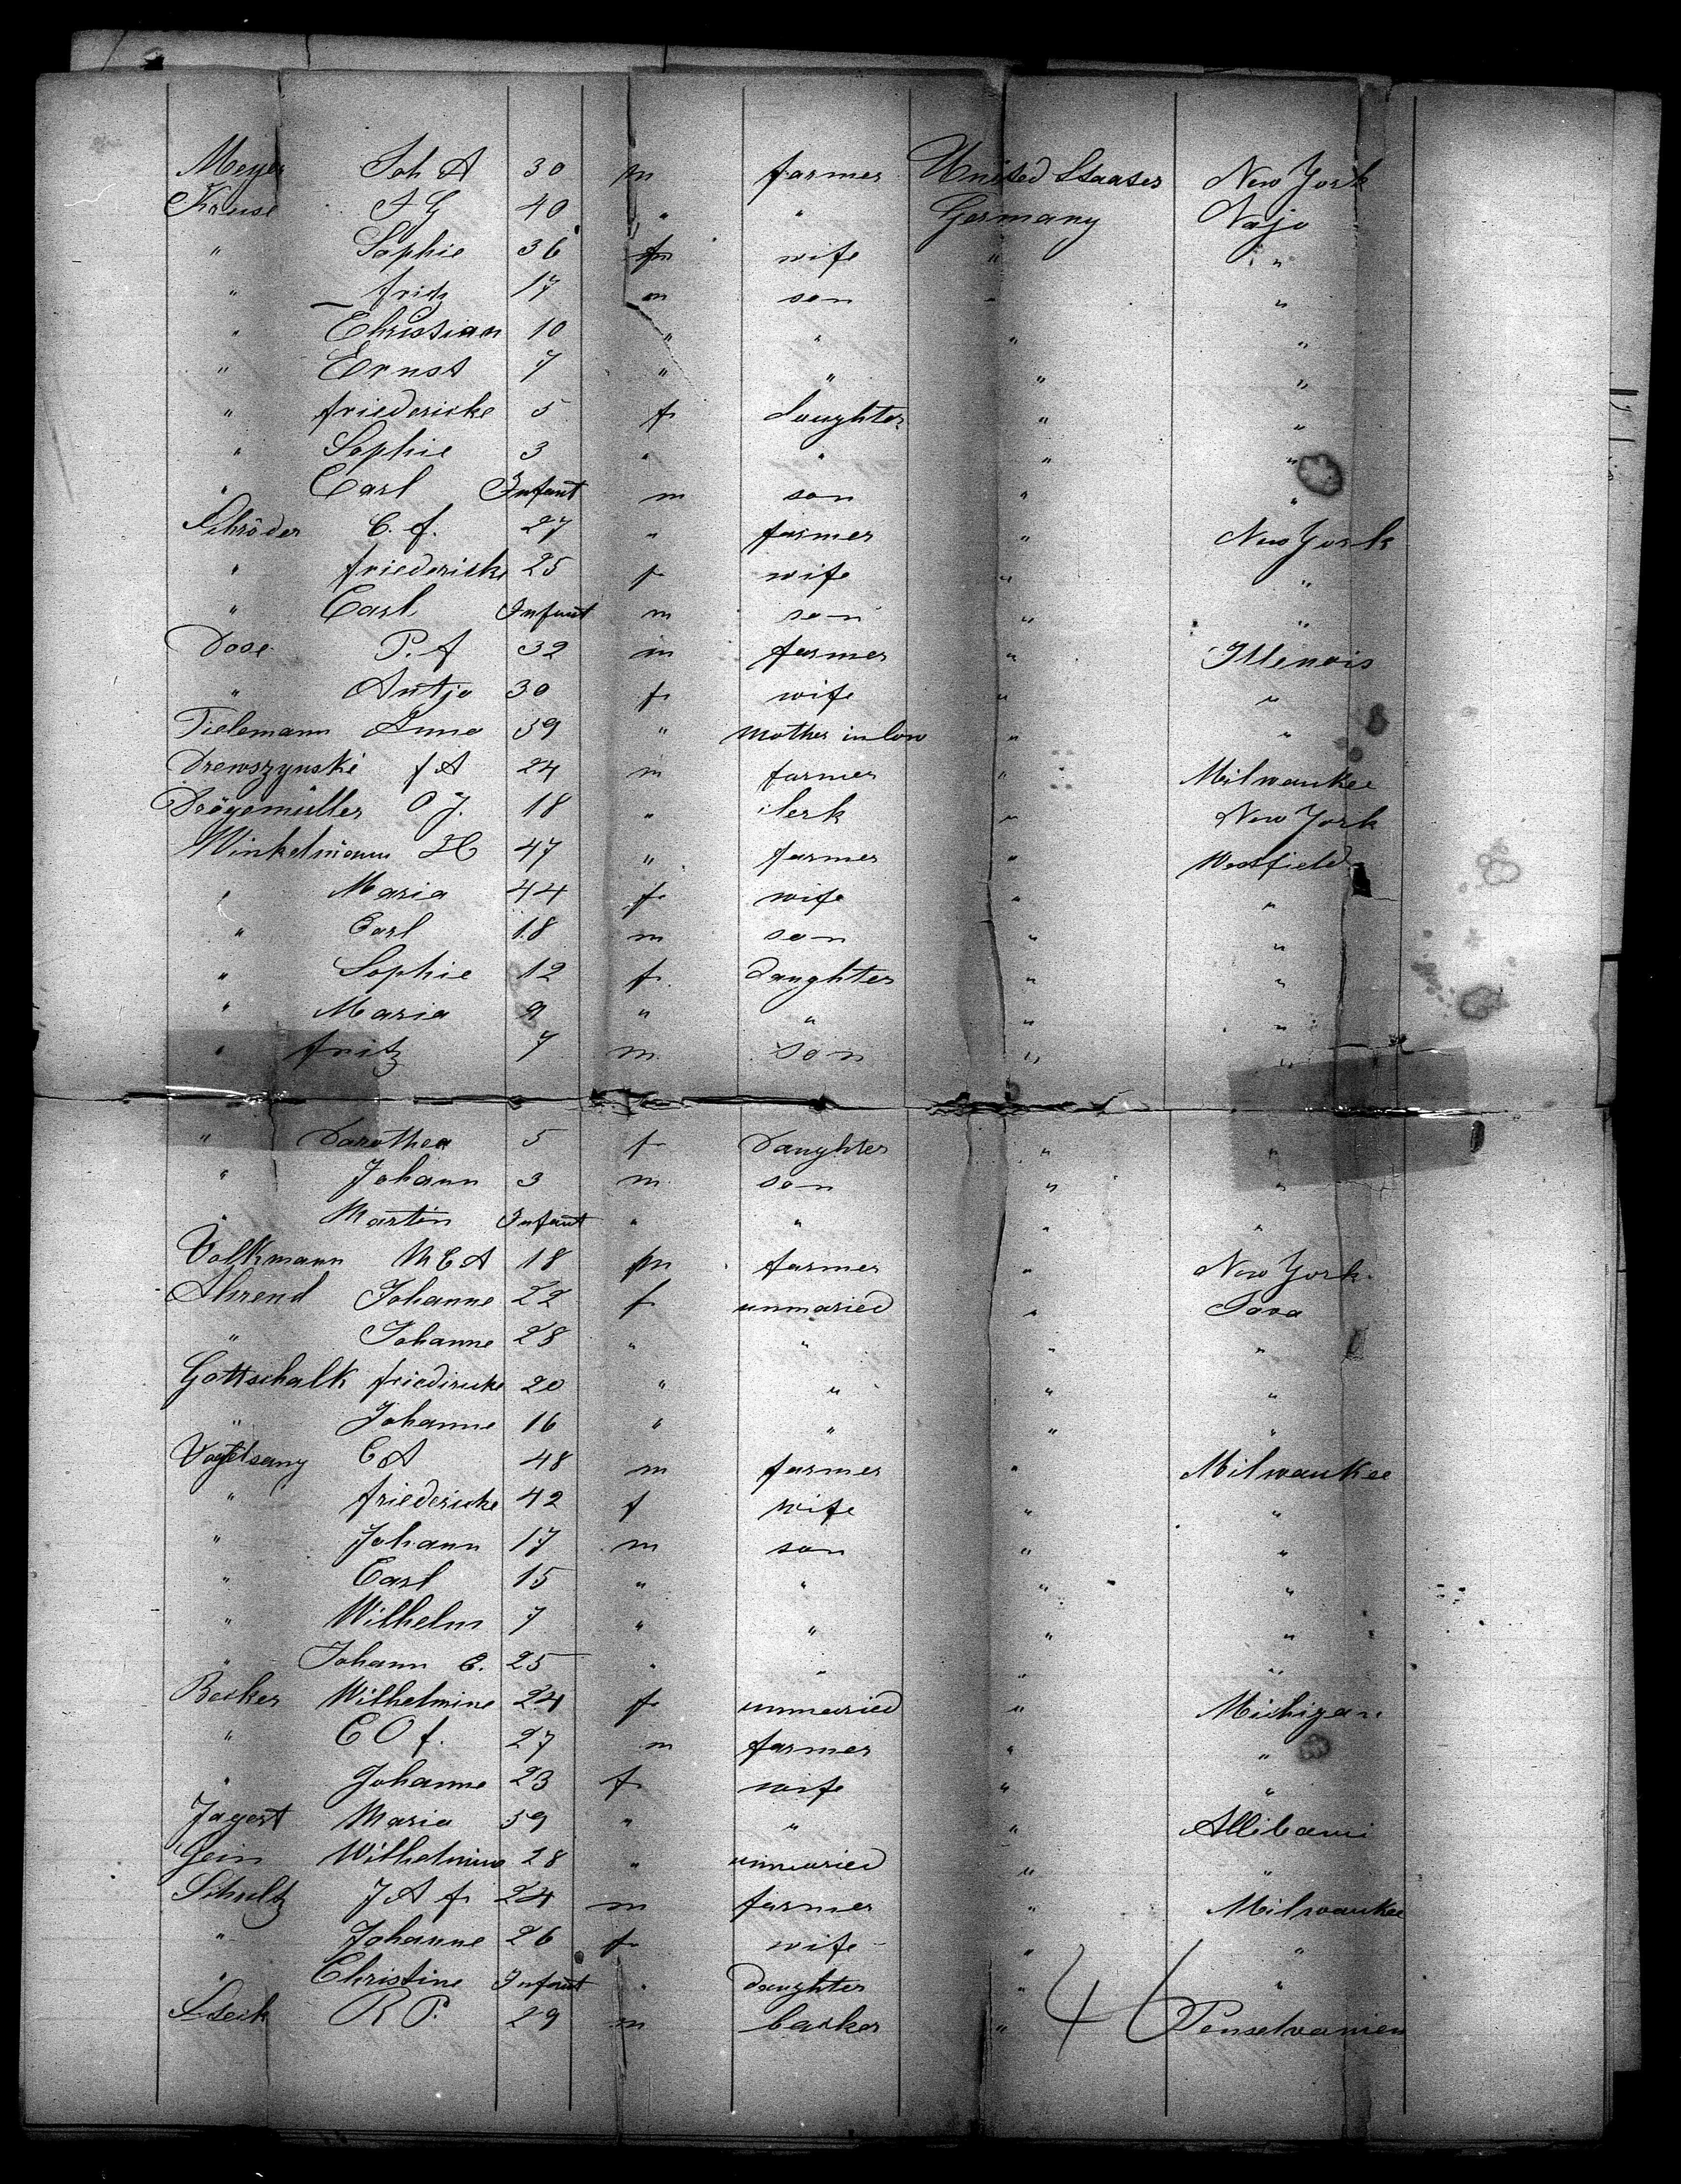 Meyer Joh A 30 m farmer United Staates New York
Kruse A G 40 " " Germany Najo
" Sophie 36 f wife " "
" fritz 17 m son " "
" Christian 10 " " " "
" Ernst 7 " " " "
" friedericke 5 f daughter " "
" Sophie 3 " " " "
" Carl Infant m son " "
Schröder C. f. 27 " farmer " New York
" friedericke 25 f wife " "
" Carl Infant m son " "
Dose P. f 32 m farmer " Illenois
" Antje 30 f wife " "
Tielemann Anna 59 " Mother in law " "
Drewszynski f A 24 m farmer " Milwaukee
Drögemüller O J. 18 " clerk " New York
Winkelmann H 47 " farmer " Westfield
" Maria 44 f wife " "
" Carl 18 m son " "
" Sophie 12 f daughter " "
" Maria 9 " " " "
" fritz 7 m son " "
" Dorothea 5 f Daughter " "
" Johann 3 m son " "
" Martin Infant " " " "
Volkmann M C A 18 m farmer " New York
Ahrend Johanne 22 f unmaried " Java
" Johanne 28 " " " "
Gottschalk friedericke 20 " " " "
" Johanne 16 " " " "
Vogelsang C A 48 m farmer " Milwaukee
" friedericke 42 f wife " "
" Johann 17 m son " "
" Carl 15 " " " "
" Wilhelm 7 " " " "
" Johann C. 25 " " " "
Becker Wilhelmine 24 f unmaried " Michigan
" C O f. 27 m farmer " "
" Johanne 23 f wife " "
Jagert Maria 59 " " " Allibami
Gein Wilhelmine 28 " unmaried " "
Schultz J A f 24 m farmer " Milwaukee
" Johanne 26 f wife " "
" Christine Infant " daughter " "
R P. 29 m backer " Penselvanien
46